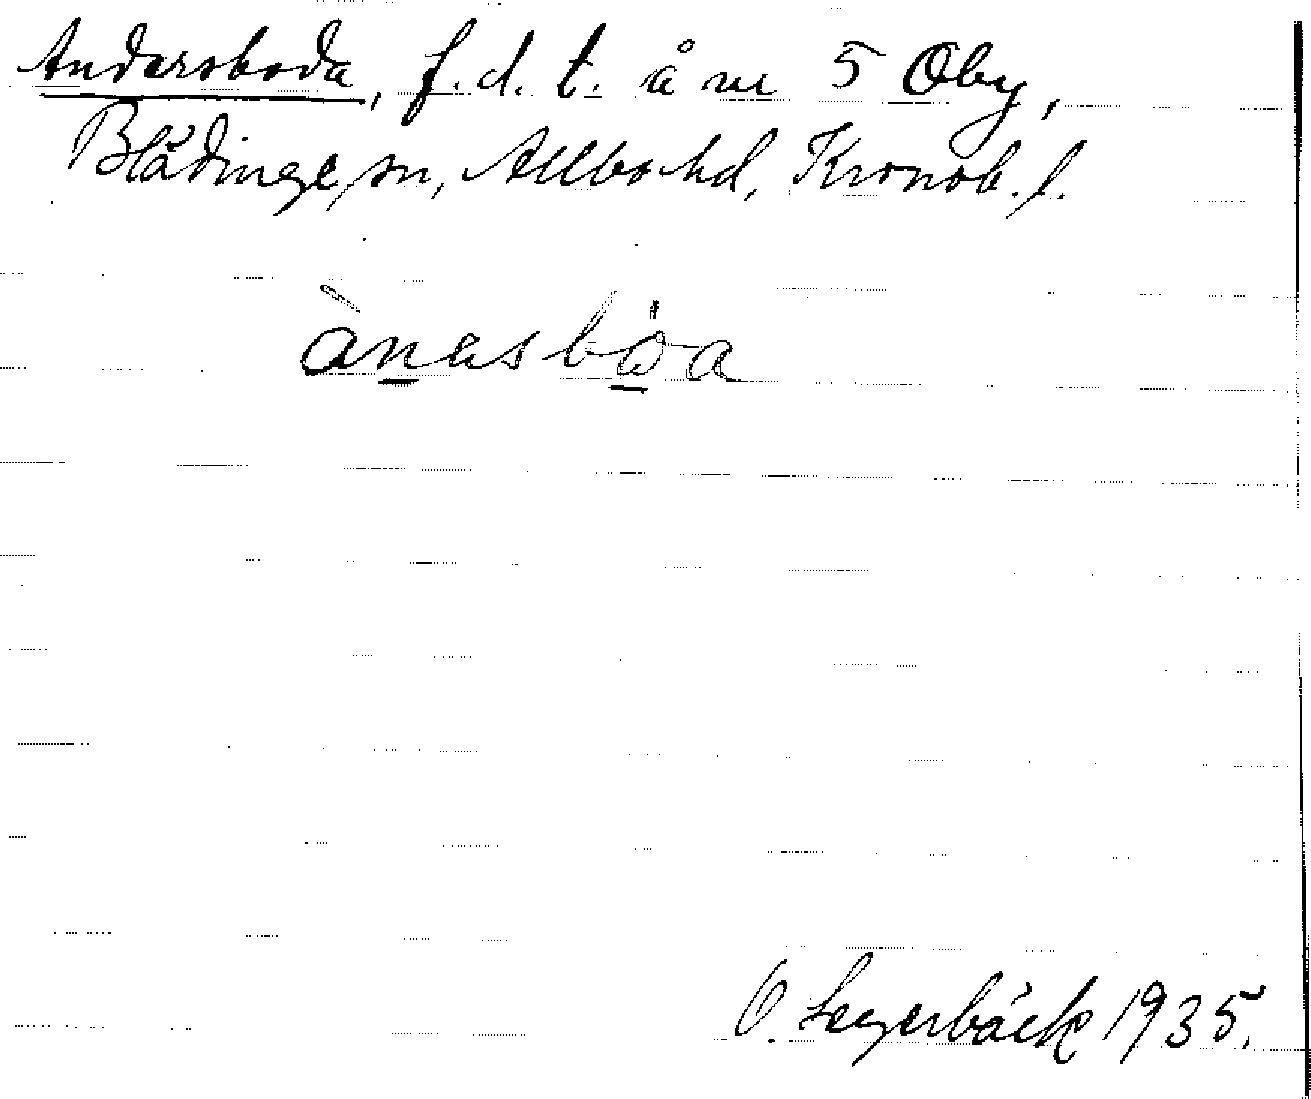 Andersboda, f.d. t. å nr 5 Oby,
Blädinge sn, Allbo hd, Kronob. l.
ànasböa
O. Segerbäck 1935.